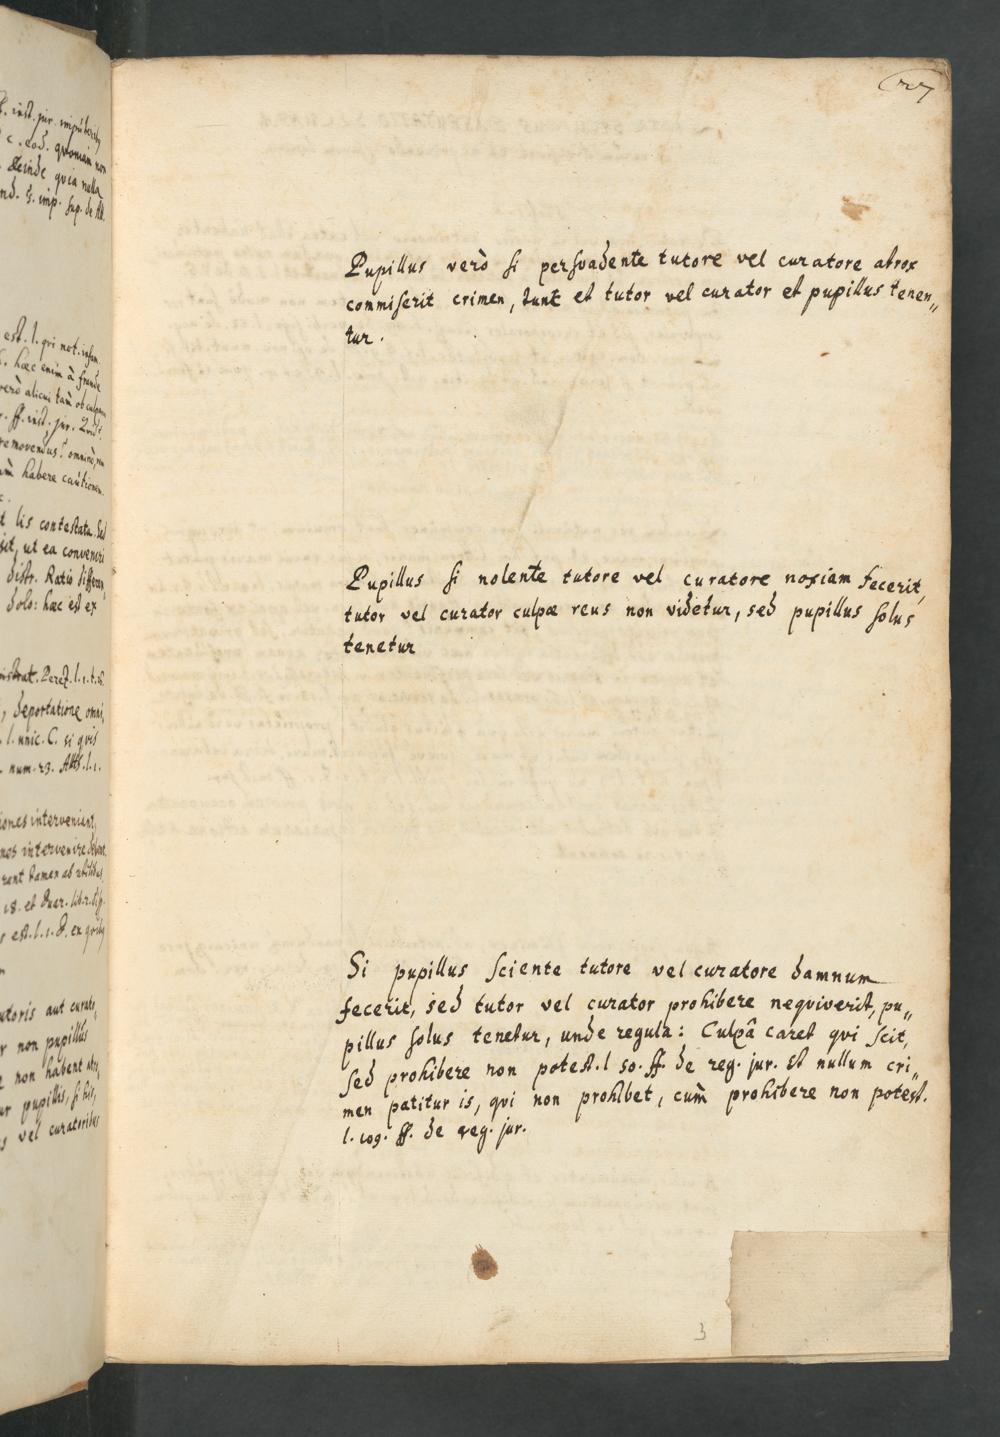 127
Pupillus verò si persvadente tutore vel curatore atrox
commiserit crimen, tunc et tutor vel curator et pupillus tenen„
tur.
Pupillus si nolente tutore vel curatore noxiam fecerit,
tutor vel curator culpæ reus non videtur, sed pupillus solus
tenetur
Si pupillus sciente tutore vel curatore damnum
fecerit, sed tutor vel curator prohibere neqviverit, pu„
pillus solus tenetur, unde regula: Culpâ caret qvi scit,
sed prohibere non potest. l 50. ff. de reg. jur. Et nullum cri„
men patitur is, qvi non prohibet, cùm prohibere non potest.
l. 109. ff. de reg. jur.
3
est. l. qvi not. infam.
hæc enim à fronte
verò alicui tam ob culpam
ff. inst. jur.
habere cautionem.
lis contestata. Sed
sit, ut ea conveniri
distr. Ratio differen,
dolo: hæc est ex
Perez. l. 1. t.
, deportatione omni,
l. unic. C. si qvis
num. 23.
intervenient,
intervenire
18. et Duar. lib. 2.
est. l. 1. D. ex qvib
aut
non pupillus
non habent
pupillis, si his,
vel curatoribus